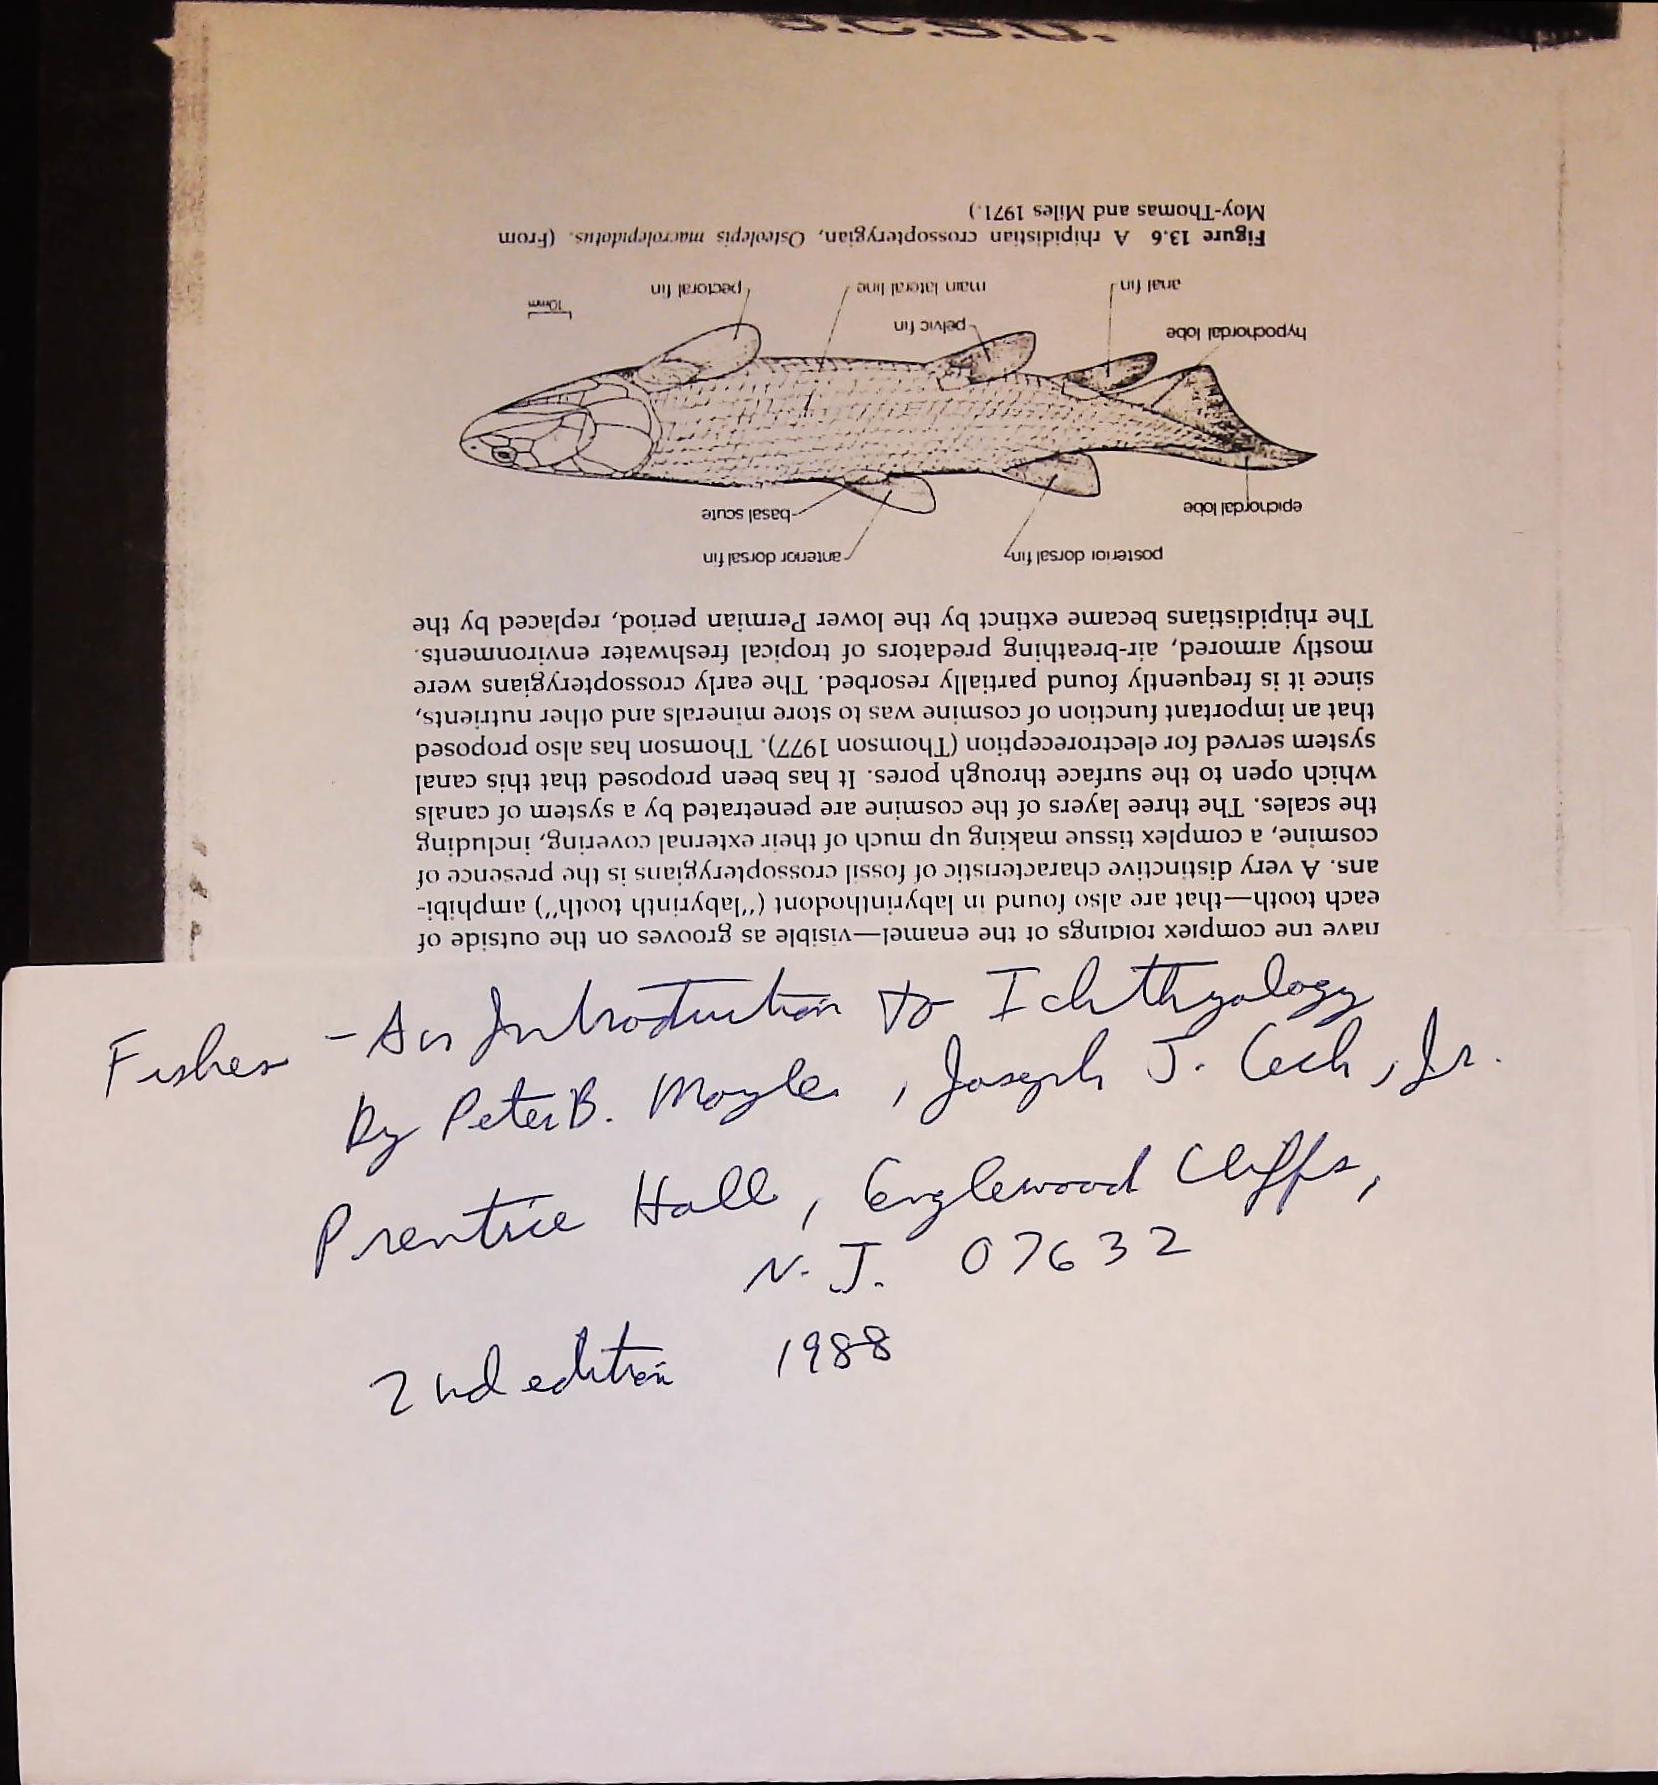 have the complex foldings of the enamel—visible as grooves on the outside of
each tooth—that are also found in labyrinthodont ("labyrinth tooth") amphibi-
ans. A very distinctive characteristic of fossil crossopterygians is the presence of
cosmine, a complex tissue making up much of their external covering, including
the scales. The three layers of the cosmine are penetrated by a system of canals
which open to the surface through pores. It has been proposed that this canal
system served for electroreception (Thomson 1977). Thomson has also proposed
that an important function of cosmine was to store minerals and other nutrients,
since it is frequently found partially resorbed. The early crossopterygians were
mostly armored, air-breathing predators of tropical freshwater environments.
The rhipidistians became extinct by the lower Permian period, replaced by the
posterior dorsal fin
anterior dorsal fin
epichordal lobe
basal scute
hypochordal lobe
pelvic fin
10mm
anal fin
main lateral line
pectoral fin
Figure 13.6 A rhipidistian crossopterygian, Osteolepis macrolepidotus. (From
Moy-Thomas and Miles 1971.)
Fishes - An Introduction to Ichthyology
by Peter B. Moyle, Joseph J. Cech, Jr.
Prentice Hall, Englewood Cliffs,
N.J. 07632
2nd edition 1988